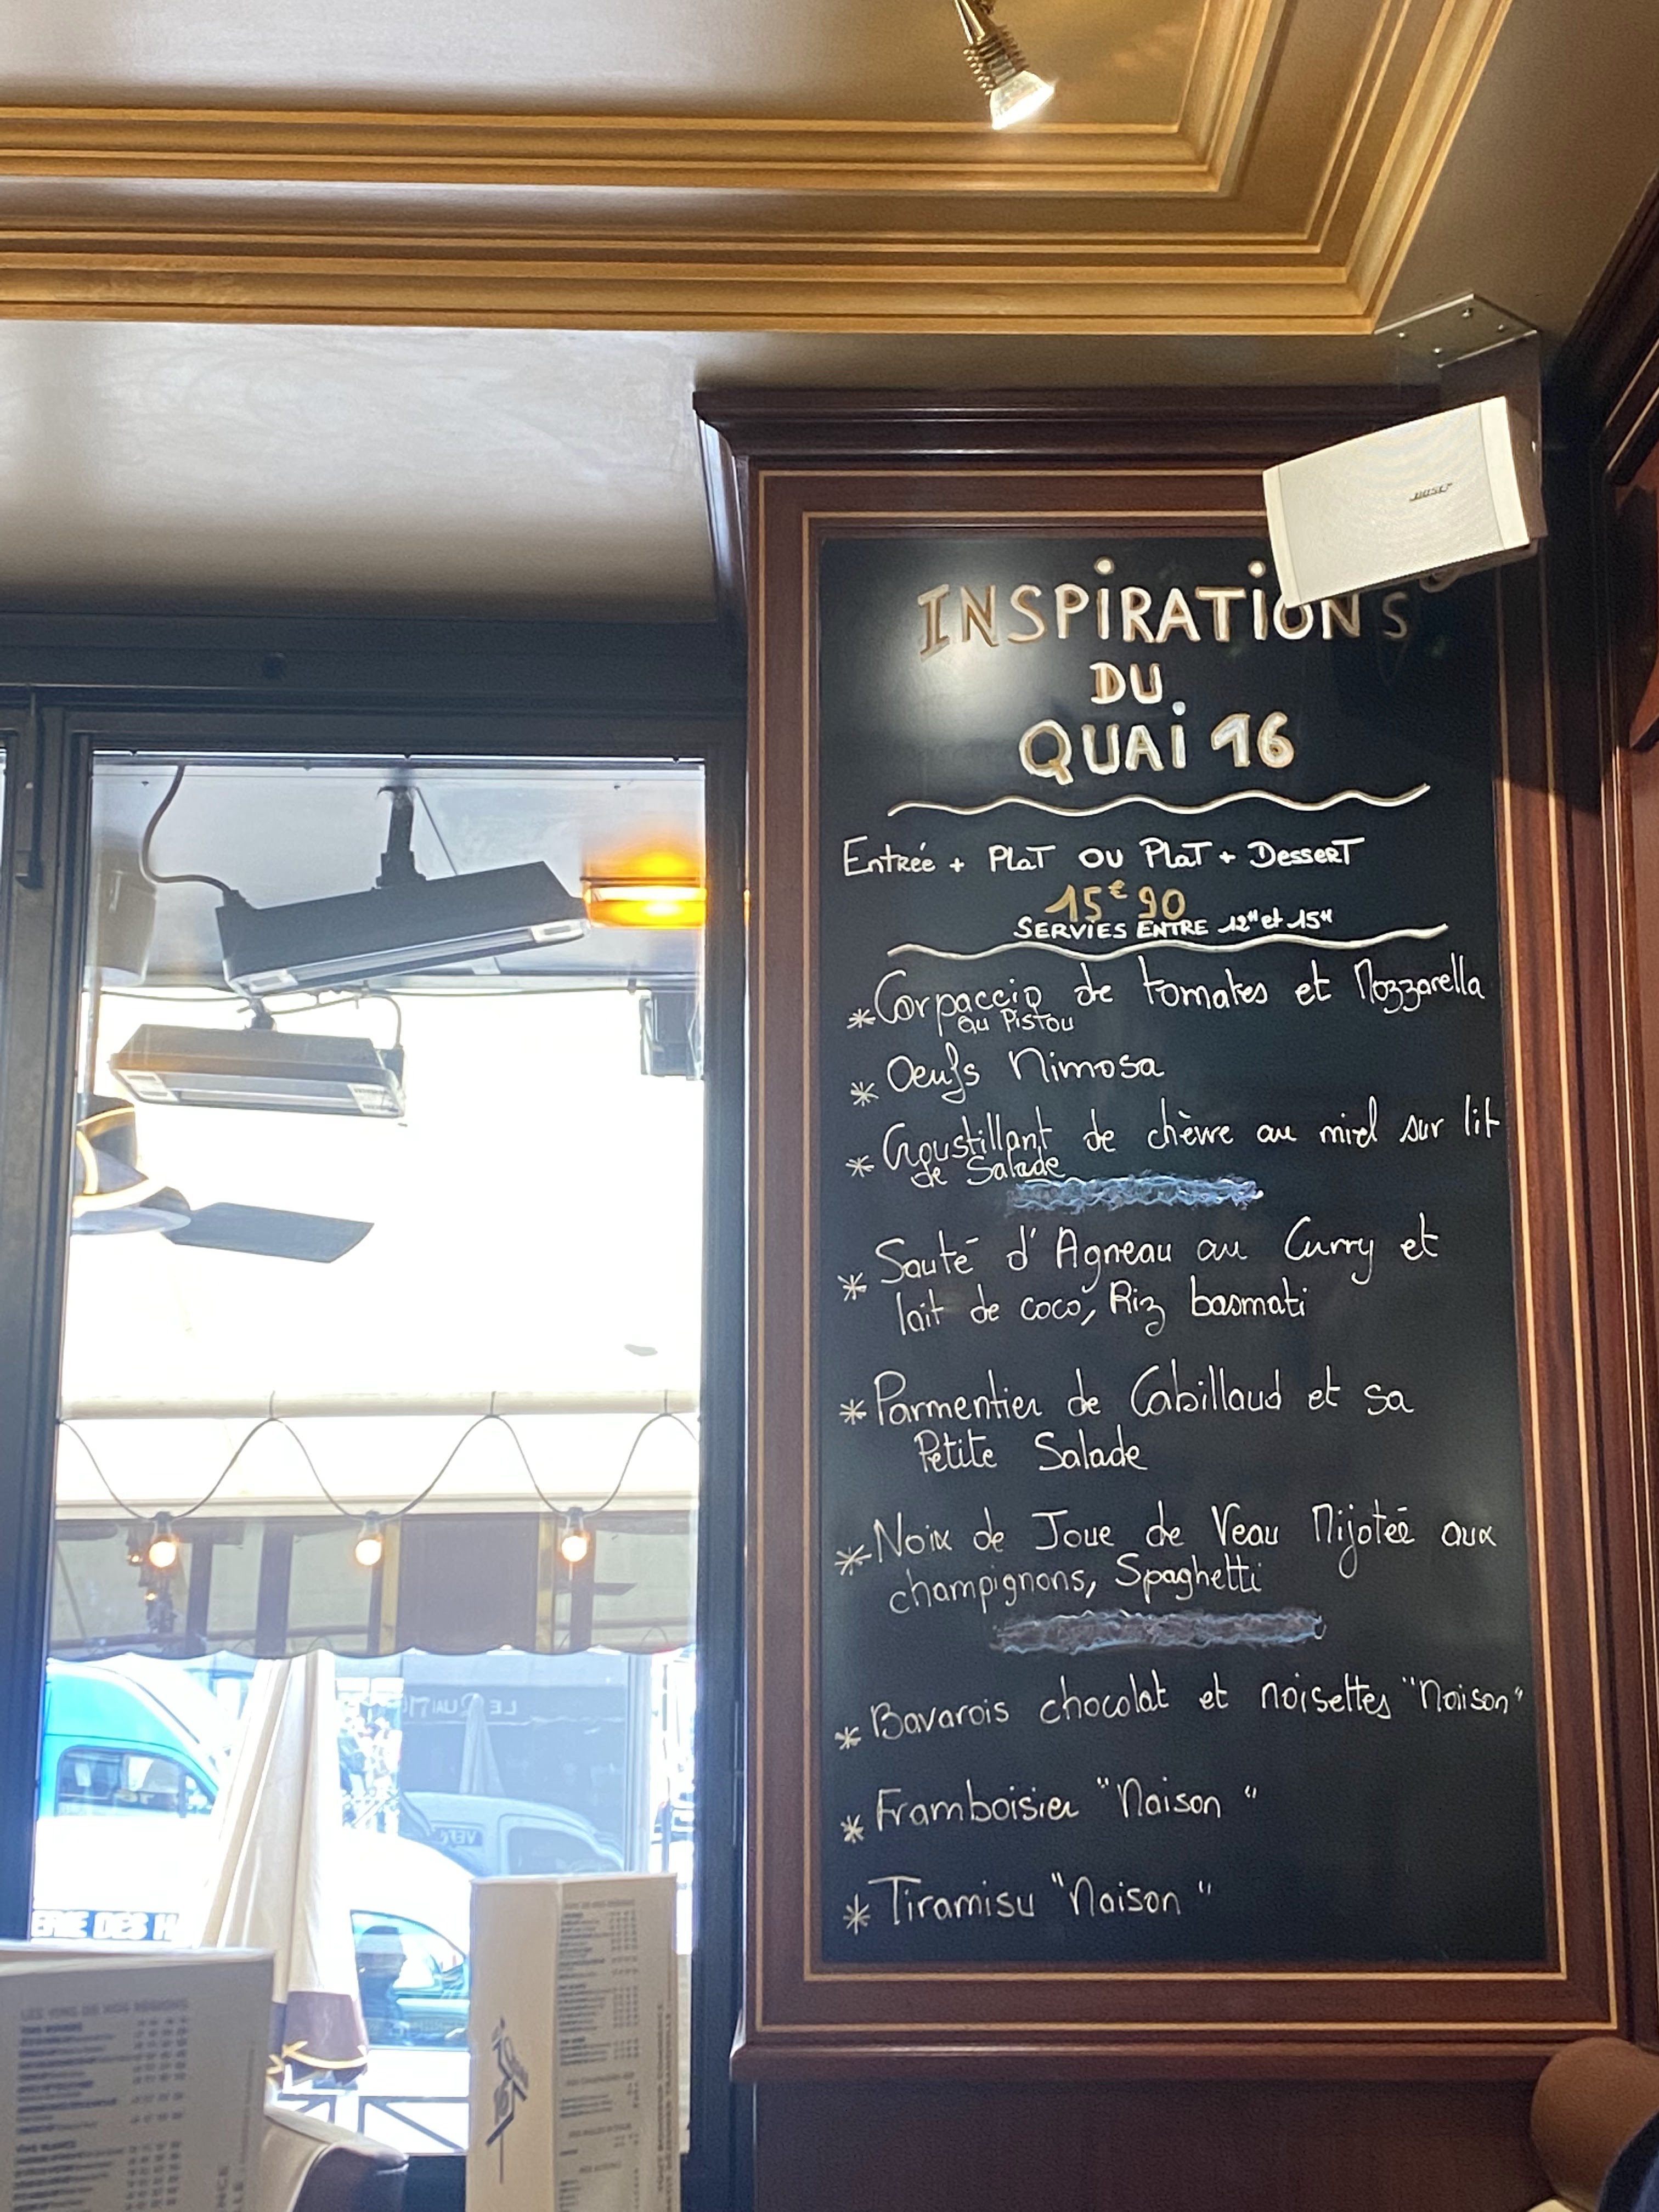 BOSE
INSPIRATIONS
DU
QUAI 16
Entrée + PLAT OU PLAT + DESSERT
15€90
SERVIES ENTRE 12H et 15H
* Carpaccio de tomates et Mozzarella
au Pistou
* Oeufs Mimosa
* Croustillant de chèvre au miel sur lit
de Salade
* Sauté d'Agneau au Curry et
lait de coco, Riz basmati
* Parmentier de Cabillaud et sa
Petite Salade
* Noix de Joue de Veau Mijotée aux
champignons, Spaghetti
* Bavarois chocolat et noisettes "Maison"
* Framboisier "Maison"
* Tiramisu "Maison"
LE QUAI
ERIE DES H